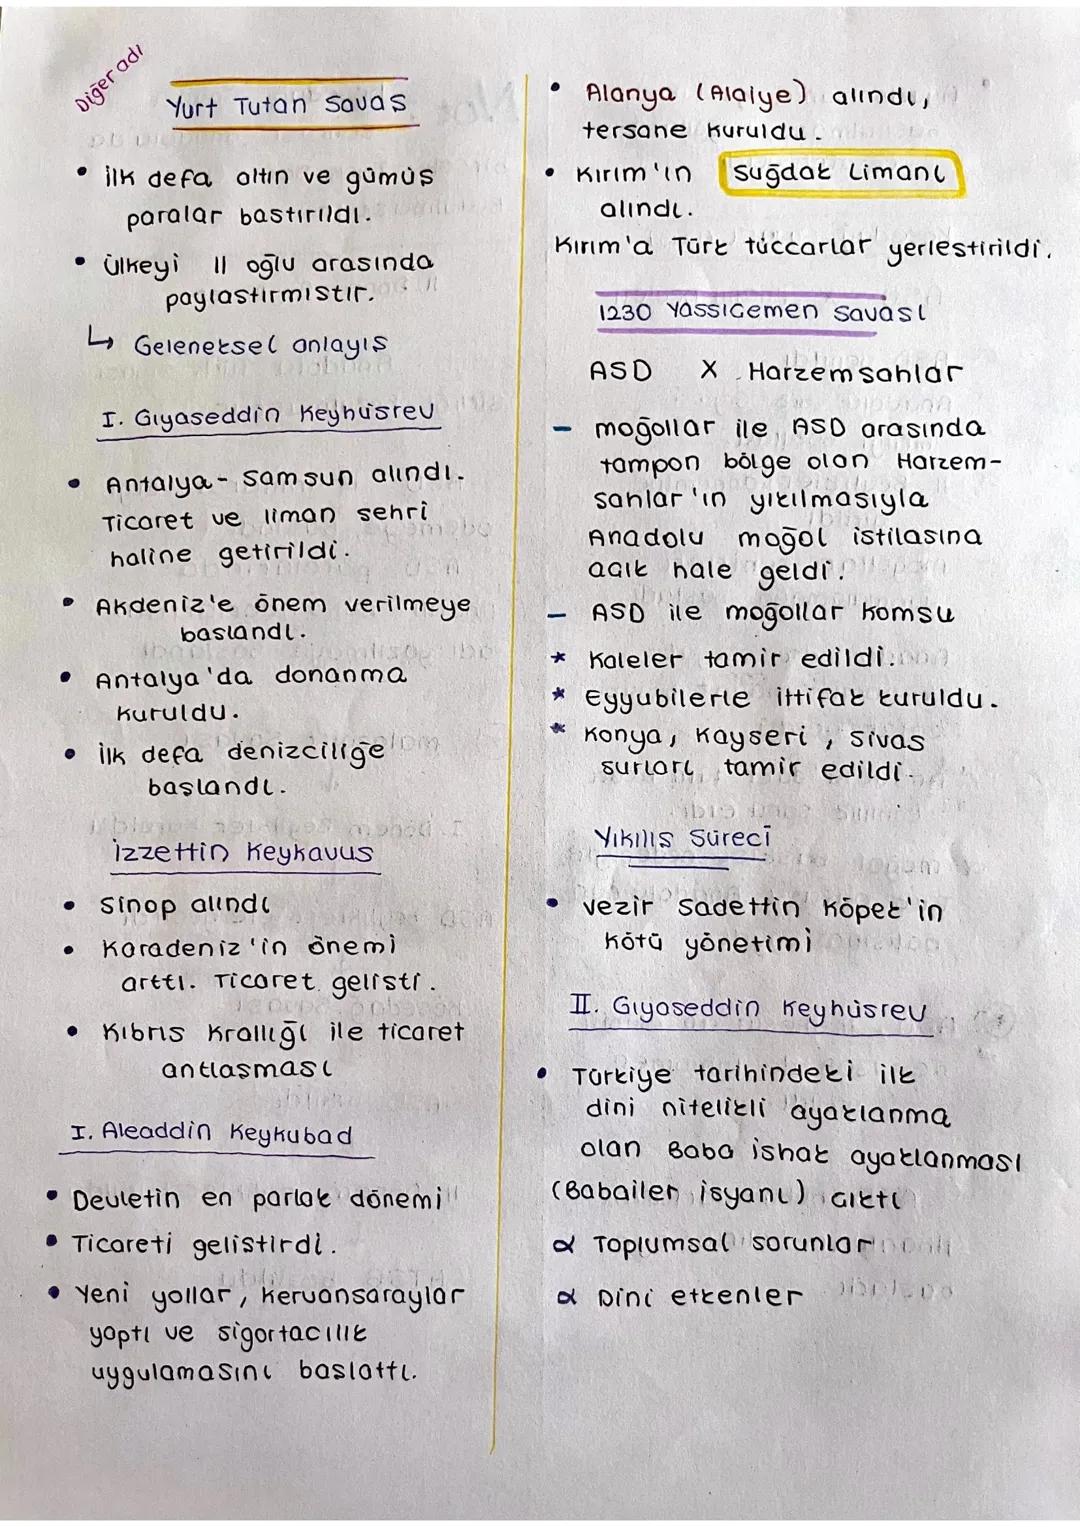 Diğer adı
Yurt Tutan Savas
• ilk defa altın ve gümüs
paralar bastırıldı.
• ülkeyi 11 oğlu arasında
paylastırmıstır.
↳ Geleneksel anlayıs
I. Gıyaseddin Keyhüsrev
• Antalya - Samsun alındı.
Ticaret ve liman sehri
haline getirildi.
• Akdeniz'e önem verilmeye
baslandı.
• Antalya'da donanma
kuruldu.
• ilk defa denizciliğe
başlandı.
izzettin Keykavus
• Sinop alındı
• Karadeniz'in önemi
arttı. Ticaret gelisti.
• Kıbrıs Krallığı ile ticaret
antlasması
I. Aleaddin Keykubad
• Devletin en parlak dönemi
• Ticareti gelistirdi.
• Yeni yollar, kervansaraylar
yaptı ve sigortacılık
uygulamasını baslattı.
• Alanya (Alaiye) alındı,
tersane kuruldu.
• Kırım'ın Suğdak Limanı
alındı.
Kırım'a Türk tüccarlar yerlestirildi.
1230 Yassıcemen Savası
ASD X Harzemsahlar
- moğollar ile ASD arasında
tampon bölge olan Harzem-
sahlar'ın yıkılmasıyla
Anadolu moğol istilasına
acık hale geldi.
- ASD ile moğollar komsu
* Kaleler tamir edildi.
* Eyyubilerle ittifak kuruldu.
* Konya, Kayseri, Sivas
surları tamir edildi.
Yıkılıs Süreci
• Vezir Sadettin Köpek'in
kötü yönetimi
II. Gıyaseddin Keyhüsrev
• Türkiye tarihindeki ilk
dini nitelikli ayaklanma
olan Baba ishak ayaklanması
(Babailer isyanı) cıktı
α Toplumsal sorunlar
α Dini etkenler